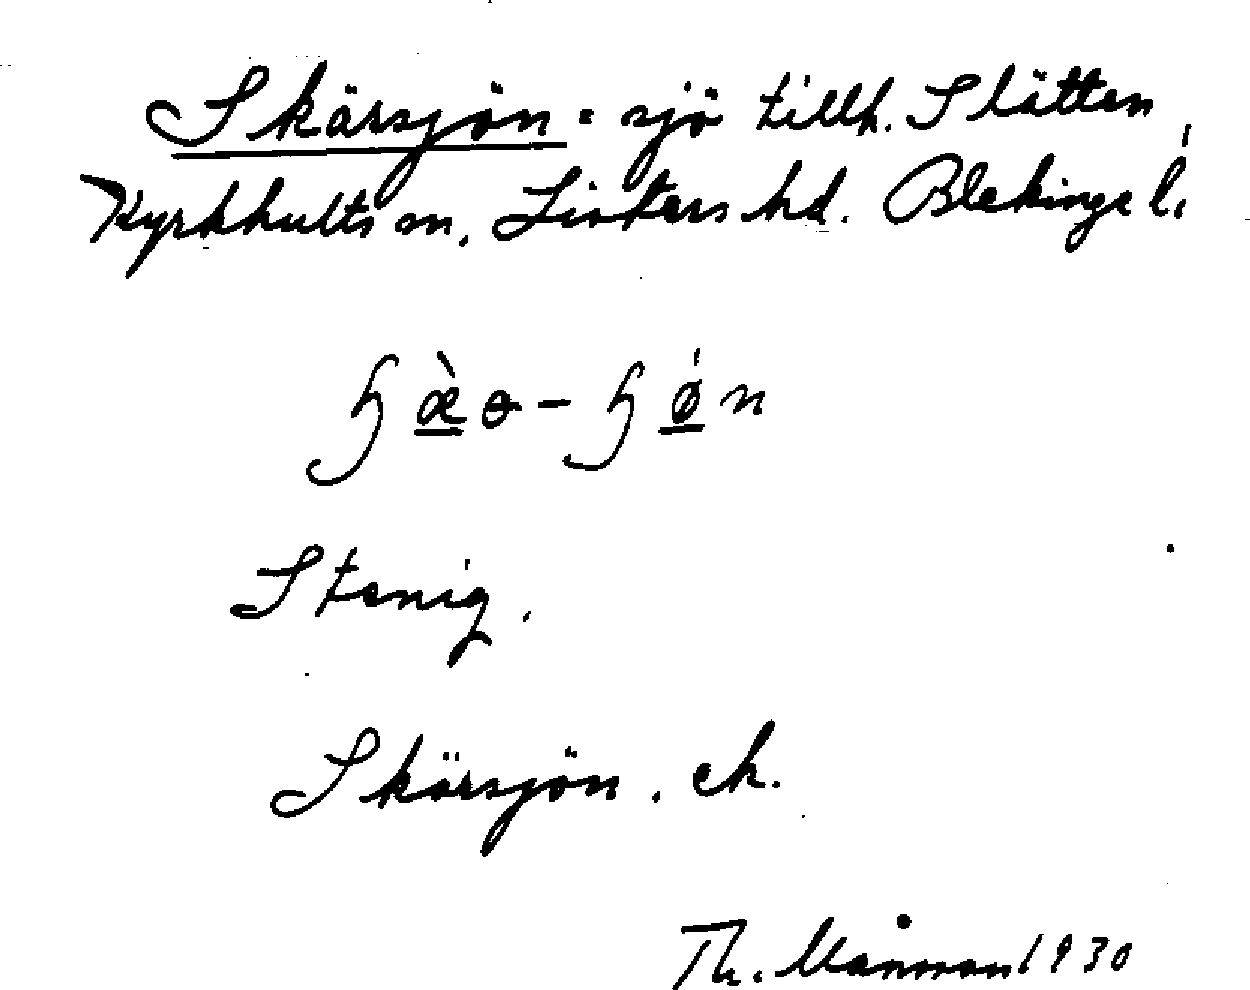 Skärsjön = sjö tillh. Slätten
Kyrkhults sn. Listers hd. Blekinge l.
ɧæ̀ɵ-ɧǿn
Stenig.
Skärsjön. ek.
Th. Månsson 1930